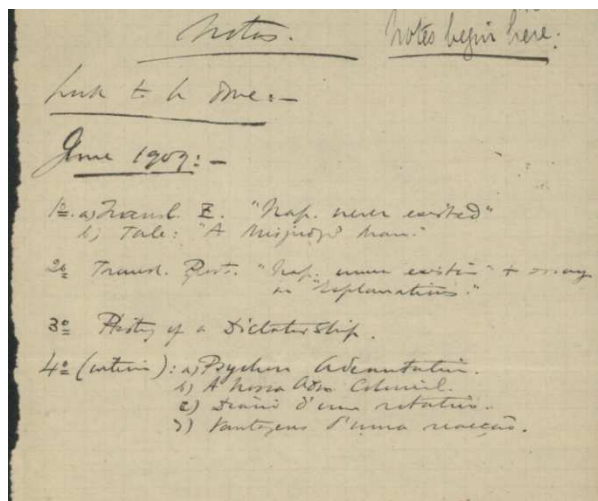 Notas.
Notes begin here.
Work to be done:—
June 1909:—
1º. a) Transl. E. "Nap. never existed"
b) Tale: "A Misjudged man."
2º Transl. Port. "Nap. nunca existiu" + essay
on "Explanations."
3º History of a Dictatorship.
4º (interim): a) Psychose Adeantativa.
b) A Nossa Adm. Colonial.
c) Diario d'um rotativo.
d) Vantagens d'uma reacção.